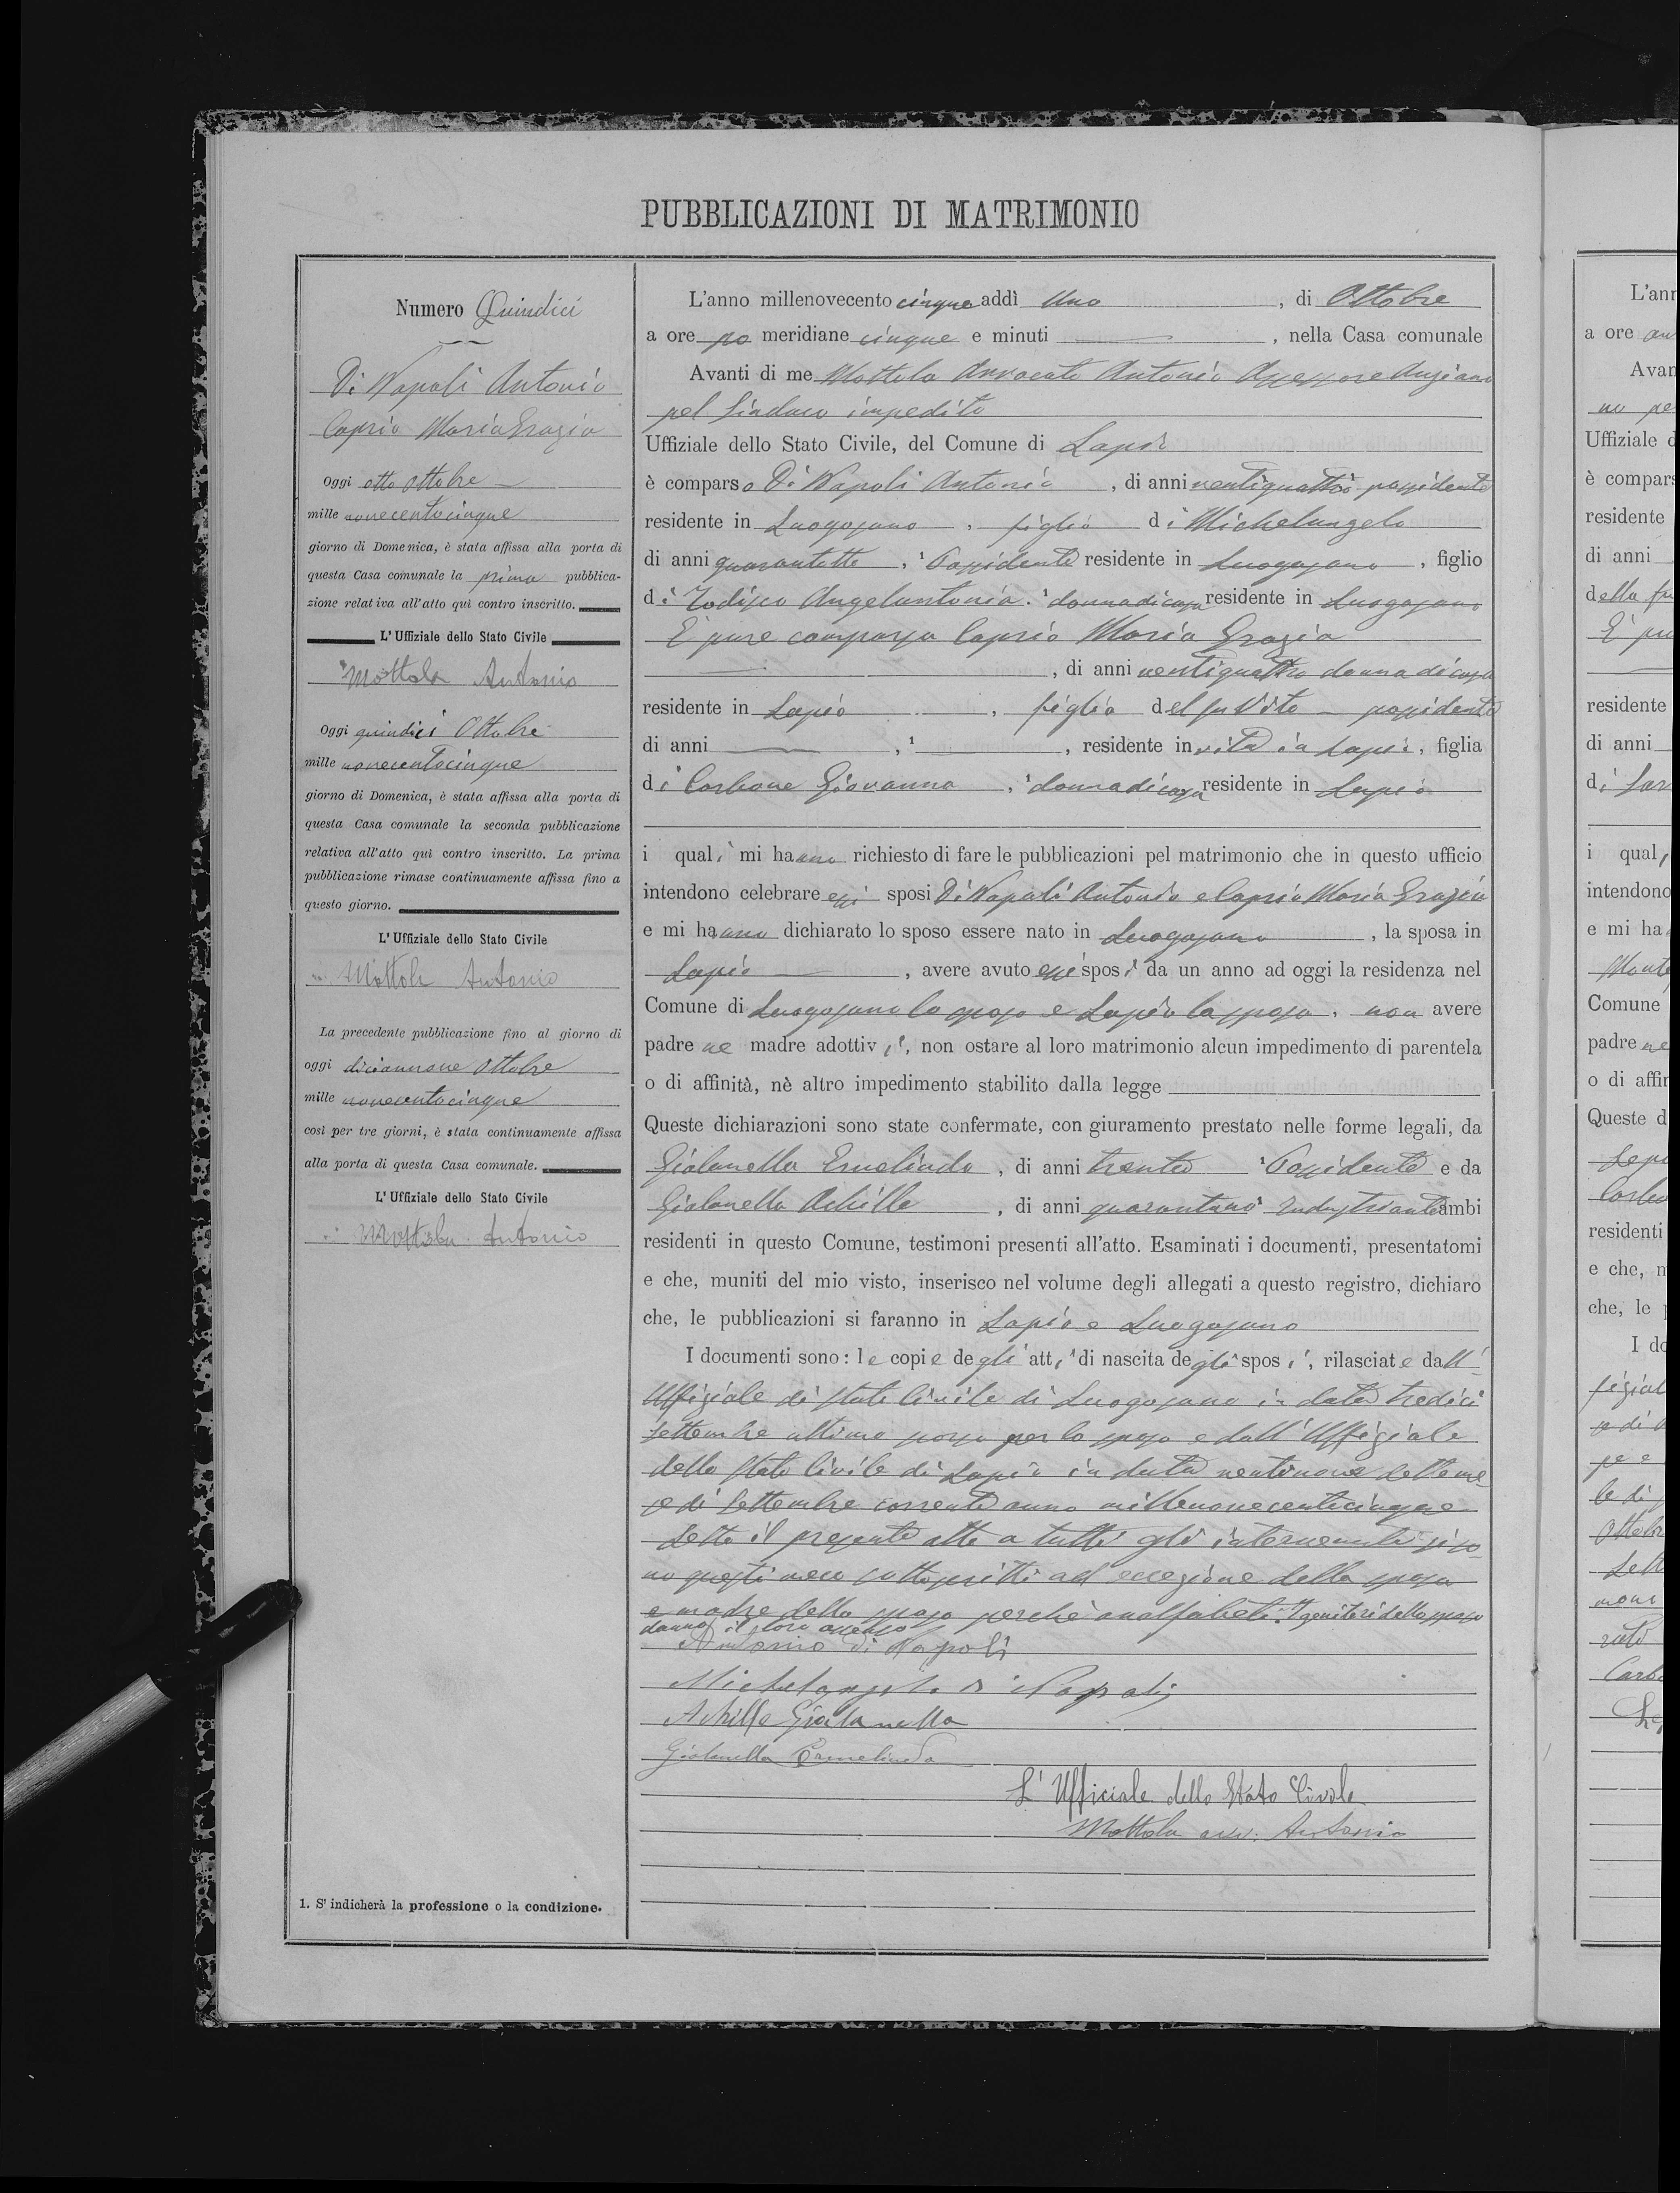 PUBBLICAZIONI DI MATRIMONIO
Numero Quindici
Di Napoli Antonio
Caprio Maria Grazia
Oggi otto Ottobre
mille novecentocinque
giorno di Domenica, è stata affissa alla porta di
questa Casa comunale la prima pubblica-
zione relativa all'atto quì contro inscritto.
L'Uffiziale dello Stato Civile
Mottola Antonio
Oggi quindici Ottobre
mille novecentocinque
giorno di Domenica, è stata affissa alla porta di
questa Casa comunale la seconda pubblicazione
relativa all'atto quì contro inscritto. La prima
pubblicazione rimase continuamente affissa fino a
questo giorno.
L'Uffiziale dello Stato Civile
Mottola Antonio
La precedente pubblicazione fino al giorno di
oggi diciannove Ottobre
mille novecentocinque
così per tre giorni, è stata continuamente affissa
alla porta di questa Casa comunale.
L'Uffiziale dello Stato Civile
Mottola Antonio
1. S'indicherà la professione o la condizione.
L'anno millenovecento cinque addì Uno, di Ottobre
a ore po meridiane cinque e minuti, nella Casa comunale
Avanti di me Mottola Avvocato Antonio Assessore Anziano
pel Sindaco impedito
Uffiziale dello Stato Civile, del Comune di Lapio
è comparso Di Napoli Antonio, di anni ventiquattro possidente
residente in Luogosano, figlio di Michelangelo
di anni quarantotto, ¹ Possidente residente in Luogosano, figlio
di Zodisco Angelantonia, ¹ donna di casa residente in Luogosano
È pure comparsa Caprio Maria Grazia
, di anni ventiquattro donna di casa
residente in Lapio, figlia del fu Vito possidente
di anni , ¹ , residente in vita in Lapio, figlia
di Carbone Giovanna, ¹ donna di casa residente in Lapio
i quali mi hanno richiesto di fare le pubblicazioni pel matrimonio che in questo ufficio
intendono celebrare essi sposi Di Napoli Antonio e Caprio Maria Grazia
e mi hanno dichiarato lo sposo essere nato in Luogosano, la sposa in
Lapio, avere avuto essi sposi da un anno ad oggi la residenza nel
Comune di Luogosano lo sposo e Lapio la sposa, non avere
padre ne madre adottivi, non ostare al loro matrimonio alcun impedimento di parentela
o di affinità, nè altro impedimento stabilito dalla legge
Queste dichiarazioni sono state confermate, con giuramento prestato nelle forme legali, da
Gialanella Ermelindo, di anni trenta ¹ Possidente e da
Gialanella Achille, di anni quarantuno Industriante ambi
residenti in questo Comune, testimoni presenti all'atto. Esaminati i documenti, presentatomi
e che, muniti del mio visto, inserisco nel volume degli allegati a questo registro, dichiaro
che, le pubblicazioni si faranno in Lapio e Luogosano
I documenti sono: le copie degli atti di nascita degli sposi, rilasciate dall'
Uffiziale di stato Civile di Luogosano in data tredici
Settembre ultimo scorso per lo sposo e dall'Uffiziale
dello Stato Civile di Lapio in data ventinove del me
se di Settembre corrente anno millenovecentocinque
Letto il presente atto a tutti gli intervenuti si so
no questi meco sottoscritti ad eccezione della sposa
e madre dello sposo perchè analfabeti. I genitori dello sposo
danno il loro assenso
Antonio di Napoli
Michelangelo Di Napoli
Achille Gialanella
Gialanella Ermelindo
L'Ufficiale dello Stato Civile
Mottola avv. Antonio
L'ann
a ore an
Avan
no pe
Uffiziale d
è compars
residente
di anni
della fu
È pu
residente
di anni
di
i qual
intendono
e mi ha
Comune
padre ne
o di affin
Queste d
residenti
e che, m
che, le p
I do